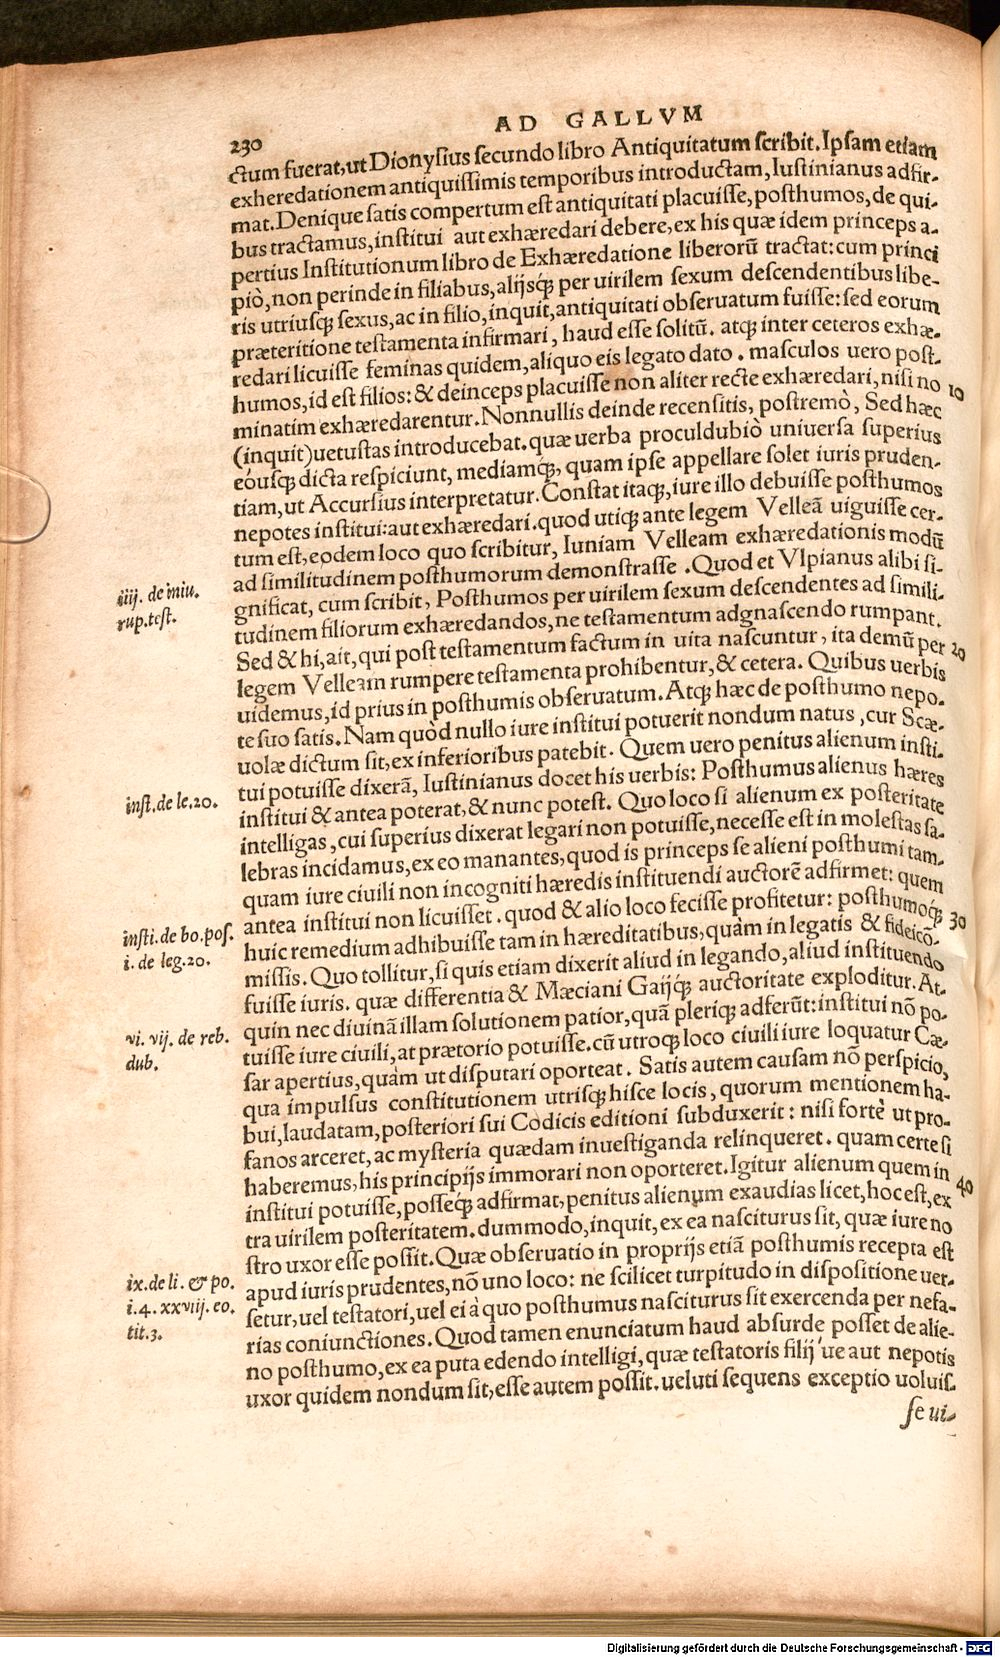 AD GALLVM
230
ctum fuerat, ut Dionysius secundo libro Antiquitatum scribit. Ipsam etiam
exheredationem antiquissimis temporibus introductam, Iustinianus adfir-
mat. Denique satis compertum est antiquitati placuisse, posthumos, de qui-
bus tractamus, institui aut exhæredari debere, ex his quæ idem princeps a-
pertius Institutionum libro de Exhæredatione liberorũ tractat: cum princi
piò, non perinde in filiabus, alijsq́; per uirilem sexum descendentibus libe-
ris utriusq; sexus, ac in filio, inquit, antiquitati obseruatum fuisse: sed eorum
præteritione testamenta infirmari, haud esse solitũ. atq; inter ceteros exhæ-
redari licuisse feminas quidem, aliquo eis legato dato. masculos uero post-
humos, id est filios: & deinceps placuisse non aliter recte exhæredari, nisi no 10
minatim exhæredarentur. Nonnullis deinde recensitis, postremò, Sed hæc
(inquit) uetustas introducebat. quæ uerba proculdubiò uniuersa superius
eousq; dicta respiciunt, mediamq́;, quam ipse appellare solet iuris pruden-
tiam, ut Accursius interpretatur. Constat itaq;, iure illo debuisse posthumos
nepotes institui: aut exhæredari. quod utiq; ante legem Velleã uiguisse cer-
tum est, eodem loco quo scribitur, Iuniam Velleam exhæredationis modũ
ad similitudinem posthumorum demonstrasse. Quod et Vlpianus alibi si-
iiij. de iniu.
rup. test.
gnificat, cum scribit, Posthumos per uirilem sexum descendentes ad simili-
tudinem filiorum exhæredandos, ne testamentum adgnascendo rumpant.
Sed & hi, ait, qui post testamentum factum in uita nascuntur, ita demũ per 20
legem Velleam rumpere testamenta prohibentur, & cetera. Quibus uerbis
uidemus, id prius in posthumis obseruatum. Atq; hæc de posthumo nepo-
te suo satis. Nam quòd nullo iure institui potuerit nondum natus, cur Scæ-
uolæ dictum sit, ex inferioribus patebit. Quem uero penitus alienum insti-
tui potuisse dixerã, Iustinianus docet his uerbis: Posthumus alienus hæres
inst. de le. 20.
institui & antea poterat, & nunc potest. Quo loco si alienum ex posteritate
intelligas, cui superius dixerat legari non potuisse, necesse est in molestas sa-
lebras incidamus, ex eo manantes, quod is princeps se alieni posthumi tam-
quam iure ciuili non incogniti hæredis instituendi auctorẽ adfirmet: quem
insti. de bo. pos.
i. de leg. 20.
antea institui non licuisset. quod & alio loco fecisse profitetur: posthumoq́; 30
huic remedium adhibuisse tam in hæreditatibus, quàm in legatis & fideicõ-
missis. Quo tollitur, si quis etiam dixerit aliud in legando, aliud instituendo
fuisse iuris. quæ differentia & Mæciani Gaijq́; auctoritate exploditur. At-
vi. vij. de reb.
dub.
quin nec diuinã illam solutionem patior, quã pleriq; adferũt: institui nõ po-
tuisse iure ciuili, at prætorio potuisse. cũ utroq; loco ciuili iure loquatur Cæ-
sar apertius, quàm ut disputari oporteat. Satis autem causam nõ perspicio,
qua impulsus constitutionem utrisq; hisce locis, quorum mentionem ha-
bui, laudatam, posteriori sui Codicis editioni subduxerit: nisi fortè ut pro-
fanos arceret, ac mysteria quædam inuestiganda relinqueret. quam certe si
haberemus, his principijs immorari non oporteret. Igitur alienum quem in 40
institui potuisse, posseq́; adfirmat, penitus alienum exaudias licet, hoc est, ex
tra uirilem posteritatem. dummodo, inquit, ex ea nasciturus sit, quæ iure no
stro uxor esse possit. Quæ obseruatio in proprijs etiã posthumis recepta est
ix. de li. & po.
i. 4. xxviij. eo.
tit. 3.
apud iuris prudentes, nõ uno loco: ne scilicet turpitudo in dispositione uer-
setur, uel testatori, uel ei à quo posthumus nasciturus sit exercenda per nefa-
rias coniunctiones. Quod tamen enunciatum haud absurde posset de alie-
no posthumo, ex ea puta edendo intelligi, quæ testatoris filij 've aut nepotis
uxor quidem nondum sit, esse autem possit. ueluti sequens exceptio uoluis-
se ui-
Digitalisierung gefördert durch die Deutsche Forschungsgemeinschaft - DFG